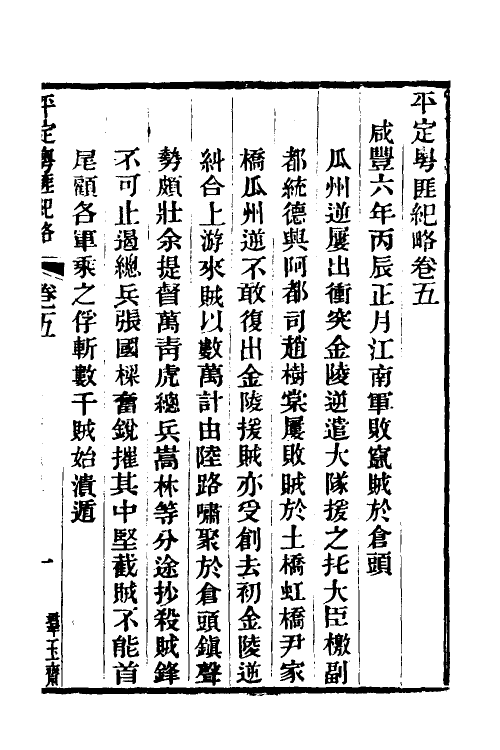 平定粤匪紀略卷五
咸豐六年丙辰正月江南軍敗竄賊於倉頭
瓜州逆屢出衝突金陵逆遣大隊援之托大臣檄副
都統德興阿都司趙樹棠屢敗賊於土橋虹橋尹家
橋瓜州逆不敢復出金陵援賊亦受創去初金陵逆
糾合上游來賊以數萬計由陸路嘯聚於倉頭鎮聲
勢頗壯余提督萬靑虎總兵嵩林等分途抄殺賊鋒
不可止遏總兵張國樑奮銳摧其中堅截賊不能首
尾顧各軍乘之俘斬數千賊始潰遁
平定粤匪紀略
卷五
一
羣玉齋